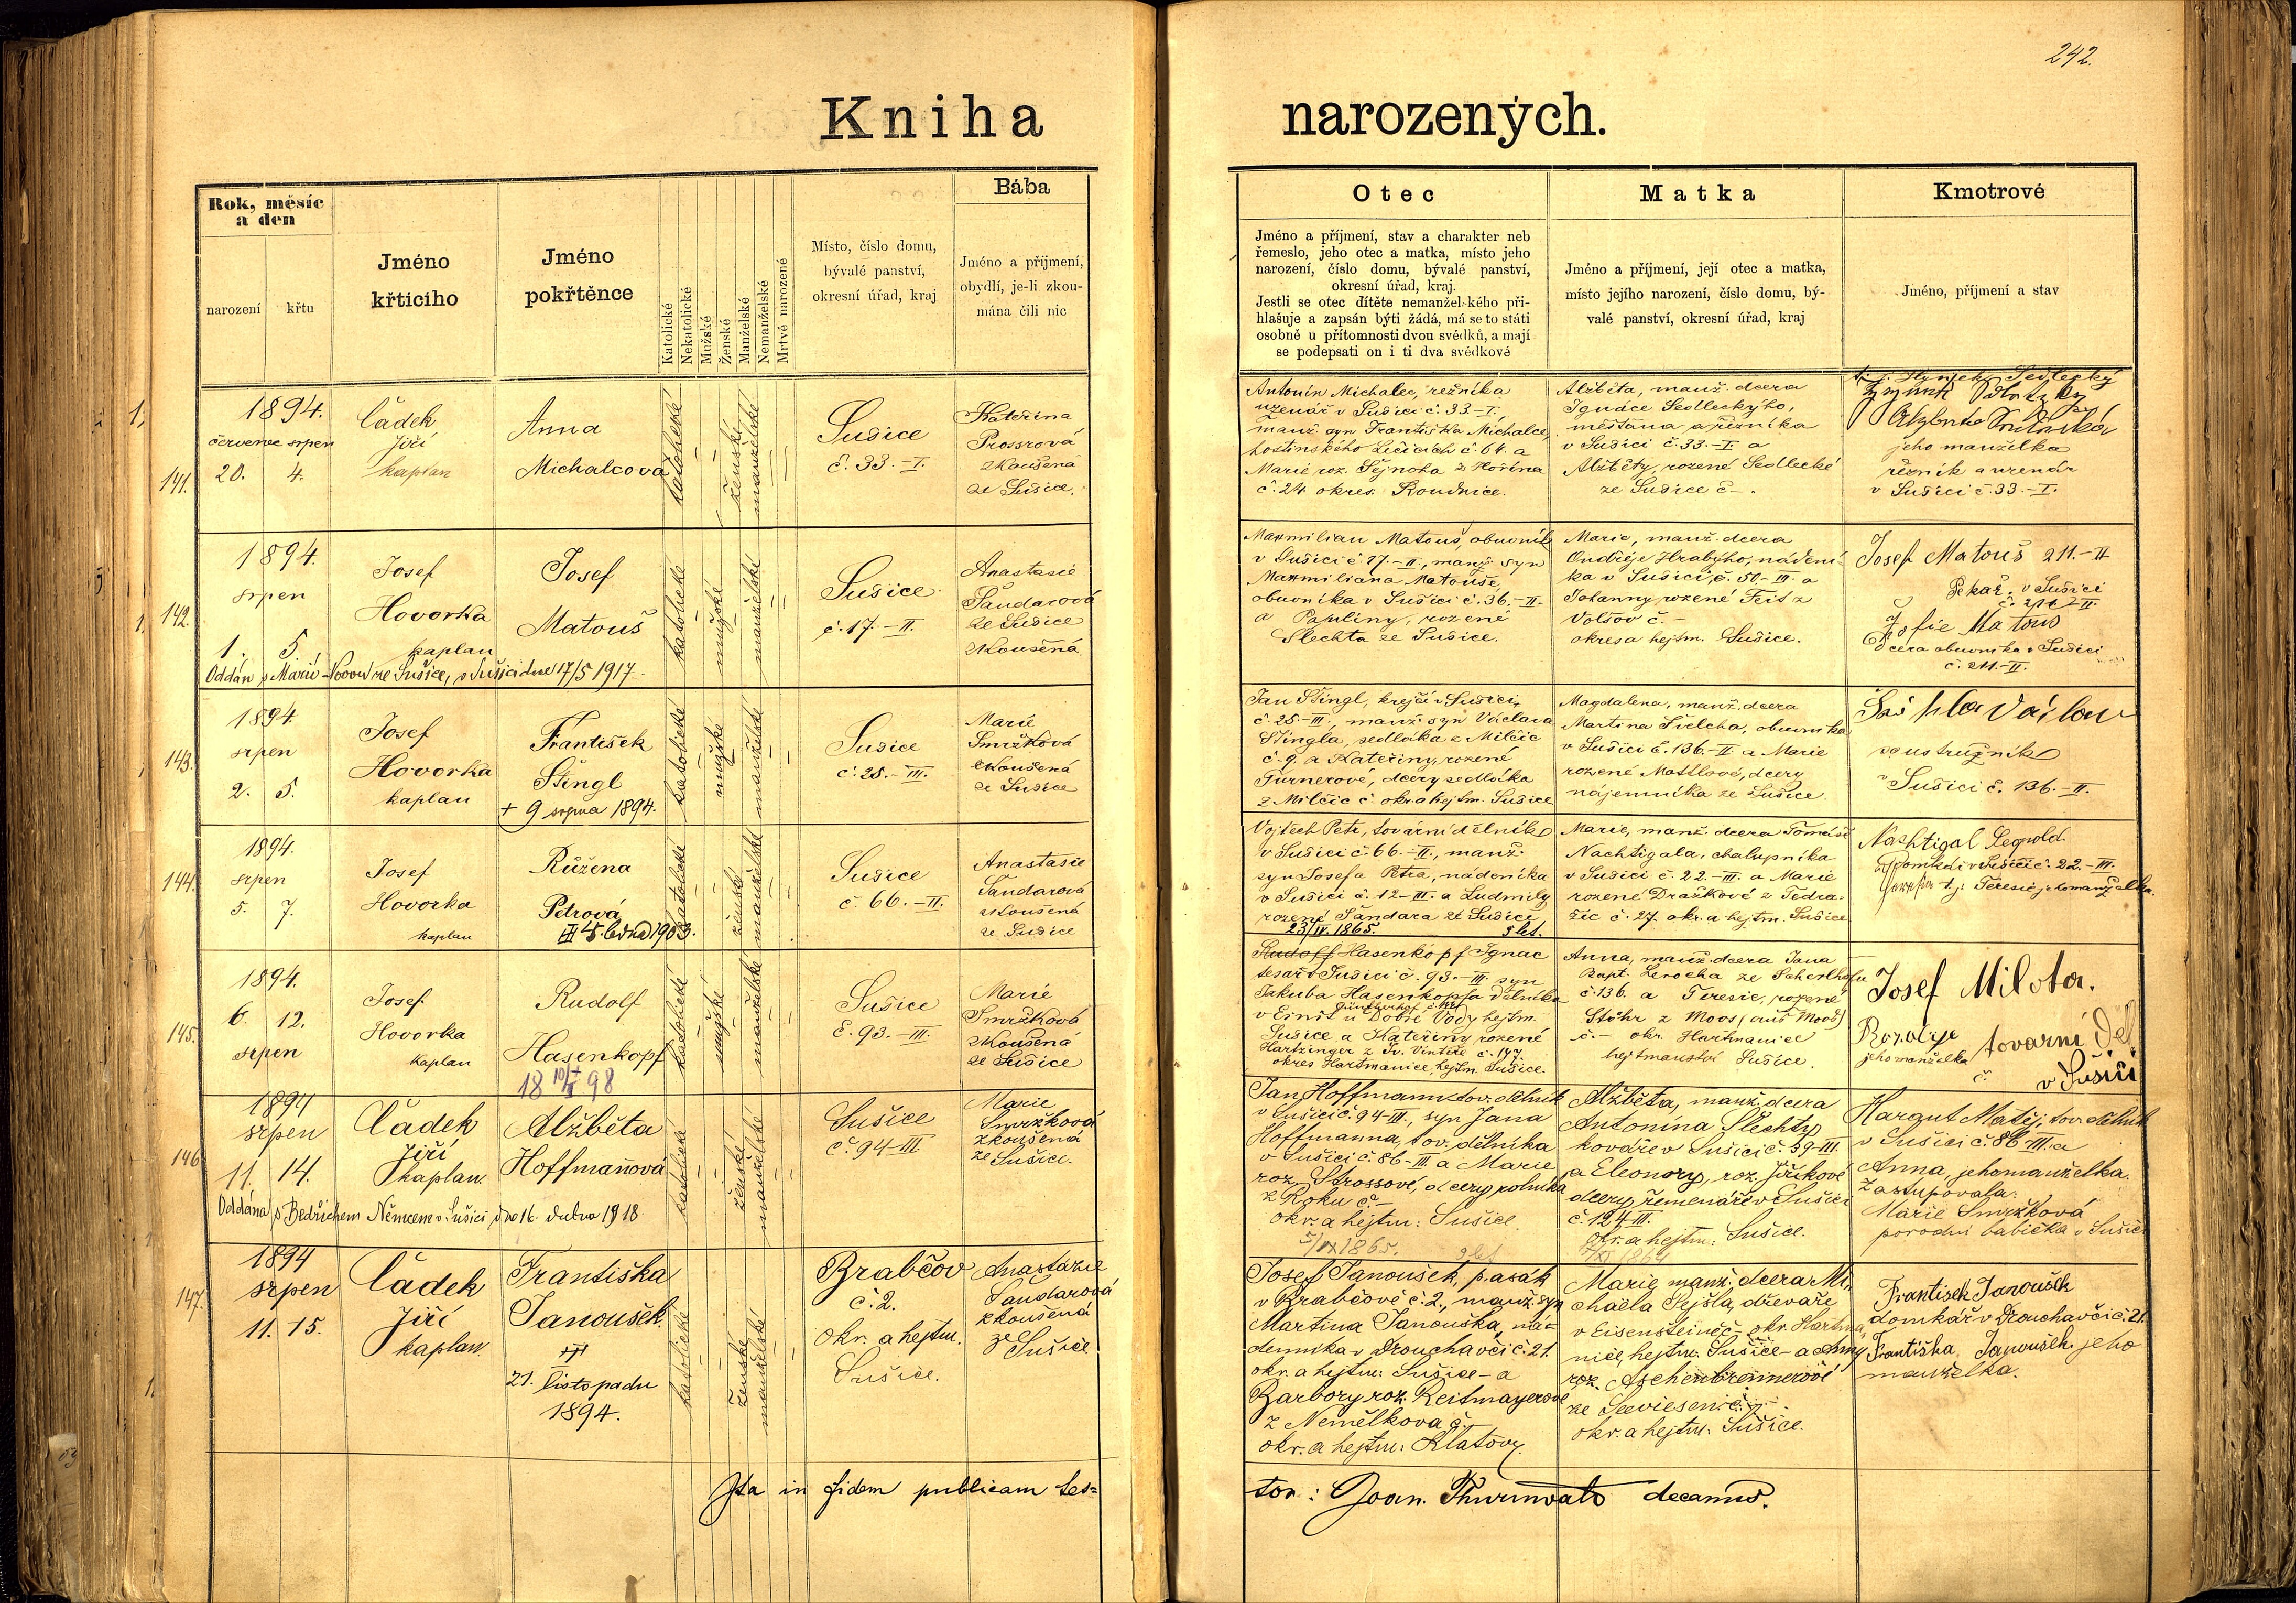 242.
Kniha
narozených.
Rok, měsíc
a den
narození
křtu
Jméno
křtícího
Jméno
pokřtěnce
Katolické
Nekatolické
Mužské
Ženské
Manželské
Nemanželské
Mrtvě narozené
Místo, číslo domu,
bývalé panství,
okresní úřad, kraj
Bába
Jméno a příjmení,
obydlí, je-li zkou-
mána čili nic
Otec
Jméno a příjmení, stav a charakter neb
řemeslo, jeho otec a matka, místo jeho
narození, číslo domu, bývalé panství,
okresní úřad, kraj.
Jestli se otec dítěte nemanželského při-
hlašuje a zapsán býti žádá, má se to státi
osobně u přítomnosti dvou svědků, a mají
se podepsati on i ti dva svědkové
Matka
Jméno a příjmení, její otec a matka,
místo jejího narození, číslo domu, bý-
valé panství, okresní úřad, kraj
Kmotrové
Jméno, příjmení a stav
141.
1894.
červenec srpen
20. 4.
Čádek
Jiří
kaplan
Anna
Michalcová
katolické
ženské
manželské
Sušice
č. 33.-I.
Kateřina
Prossrová
zkoušená
ze Sušice.
Antonín Michalec, řezníka
uzenář v Sušici č. 33-I.
manž. syn Františka Michalce,
hostinského Ličicích č. 64. a
Marie roz. Šejnoha z Hořína
č. 24. okres. Roudnice.
Alžběta, manž. dcera
Ignáce Sedleckýho,
měšťana a řezníka
v Sušici č. 33.-I a
Alžběty, rozené Sedlecké
ze Sušice č-.
t. j. Hynek Sedlecký
jeho manželka
řezník a uzenář
v Sušici č. 33.-I.
142.
1894.
srpen
1. 5.
Josef
Hovorka
kaplan
Josef
Matouš
katolické
mužské
manželské
Sušice
č. 17.-II.
Anastasie
Šandarová
ze Sušice
zkoušená
Oddán s Marií Novou ze Sušice, v Sušici dne 17/5 1917.
Maxmilian Matouš, obuvník
v Sušici č. 17.-II., manž. syn
Maxmiliana Matouše
obuvníka v Sušici č. 36.-II.
a Pauliny, rozené
Šlechta ze Sušice.
Marie, manž. dcera
Ondřeje Hrabýho, nádení-
ka v Sušici, č. 50.-III. a
Johanny rozené Feit z
Volšov č.-
okresa hejtm. Sušice.
Josef Matouš 211.-II
Pekař v Sušici
č. 211-II.
Žofie Matouš
dcera obuvníka v Sušici
č. 211.-II.
143.
1894.
srpen
2. 5.
Josef
Hovorka
kaplan
František
Štingl
+ 9 srpna 1894.
katolické
mužské
manželské
Sušice
č. 25.-III.
Marie
Smržková
zkoušená
ze Sušice
Jan Štingl, krejčí v Sušici,
č. 25.-III., manž. syn Václava
Štingla, sedláka z Milčic
č. 9. a Kateřiny, rozené
Turnerové, dcery sedláka
z Milčic č. okr. a hejtm. Sušice
Magdalena, manž. dcera
Martina Šilcha, obuvníka
v Sušici č. 136.-II a Marie
rozené Mattlové, dcery
nájemníka ze Sušice.
soustružník
v Sušici č. 136.-II.
144.
1894.
srpen
5. 7.
Josef
Hovorka
kaplan
Růžena
Petrová
5. ledna 1903.
katolické
ženské
manželské
Sušice
č 66.-II.
Anastasie
Šandarová
zkoušená
ze Sušice
Vojtěch Petr, tovární dělník
v Sušici č. 66.-II., manž.
syn Josefa Petra, nádeníka
v Sušici č. 12-III. a Ludmily
rozené Šandara ze Sušice
23/IV. 1865. 9 let.
Marie, manž. dcera Tomáše
Nachtigala, chalupníka
v Sušici č. 22.-III. a Marie
rozené Draškové z Tedra-
žic č. 27. okr. a hejtm. Sušice
Nachtigal Leopold.
domkář v Sušici č. 22.-III.
t. j. Teresie jeho manželka.
145.
1894.
6. 12.
srpen
Josef
Hovorka
kaplan
Rudolf
Hasenkopf
18 10/X 98
katolické
mužské
manželské
Sušice
č. 93.-III.
Marie
Smržková
zkoušená
ze Sušice
Rudolf Hasenkopf Ignac
tesař v Sušici č. 93.-III. syn
Jakuba Hasenkopfa dělníka
v Einöt u Dobré Vody hejtm.
Sušice a Kateřiny rozené
Hartzinger z Sv. Vintíře č. 147.
okres Hartmanice, hejtm. Sušice.
Anna, manž. dcera Jana
Bapt. Lerocha ze Scherlhofu
č. 136. a Teresie, rozené
Stöhr z Moos (auf Moos)
č.- okr. Hartmanice
hejtmanství Sušice.
Josef Milota.
Rozalije
jeho manželka
tovární děl.
v Sušici
146.
1894
srpen
11. 14.
Čádek
Jiří
kaplan.
Alžběta
Hoffmanová
katolické
ženské
manželské
Sušice
č. 94-III.
Marie
Smržková
zkoušená
ze Sušice.
Oddána s Bedřichem Němcem v Sušici dne 16. dubna 1918.
Jan Hoffmann tov. dělník
v Sušici č. 94-III., syn Jana
Hoffmanna, tov. dělníka
v Sušici č. 86-III. a Marie
roz. Strossové, dcery rolníka
z Roku č.-
okr. a hejtm: Sušice.
5/IX 1865. 9 let
Alžběta, manž. dcera
Antonína Šlechty,
kováře v Sušici č. 59-III.
a Eleonory, roz. Jiříkové
dcery řemenáře v Sušici
č. 124-III.
okr. a hejtm: Sušice.
Hargut Matěj, tov. dělník
v Sušici č. 86-III. a
Anna, jeho manželka.
Zastupovala:
Marie Smržková
porodní babička v Sušici
147.
1894
srpen
11. 15.
Čádek
Jiří
kaplan.
Františka
Janoušek.
21. listopadu
1894.
katolické
ženské
manželské
Brabčov
č. 2.
okr. a hejtm.
Sušice.
Anastázie
Šandarová
zkoušená
ze
Sušice
Josef Janoušek, pasák
v Brabčově č. 2., manž. syn
Martina Janouška, ná-
denníka v Drouchavči č. 21.
okr. a hejtm: Sušice - a
Barbory roz. Reitmayerové
z Nemělkova č.-
okr. a hejtm: Klatovy.
Marie, manž. dcera Mi-
chaela Stejšla, dřevaře
v Eisensteině č.- okr. Hartma-
nice, hejtm: Sušice - a Anny
roz. Aschenbrennerové
ze Seewiesen č.-
okr. a hejtm: Sušice.
František Janoušek
domkář v Drouchavči č. 21.
Františka Janoušek jeho
manželka.
Ita in fidem publicam tes=
tor: Joan. Thurnwald decanus.